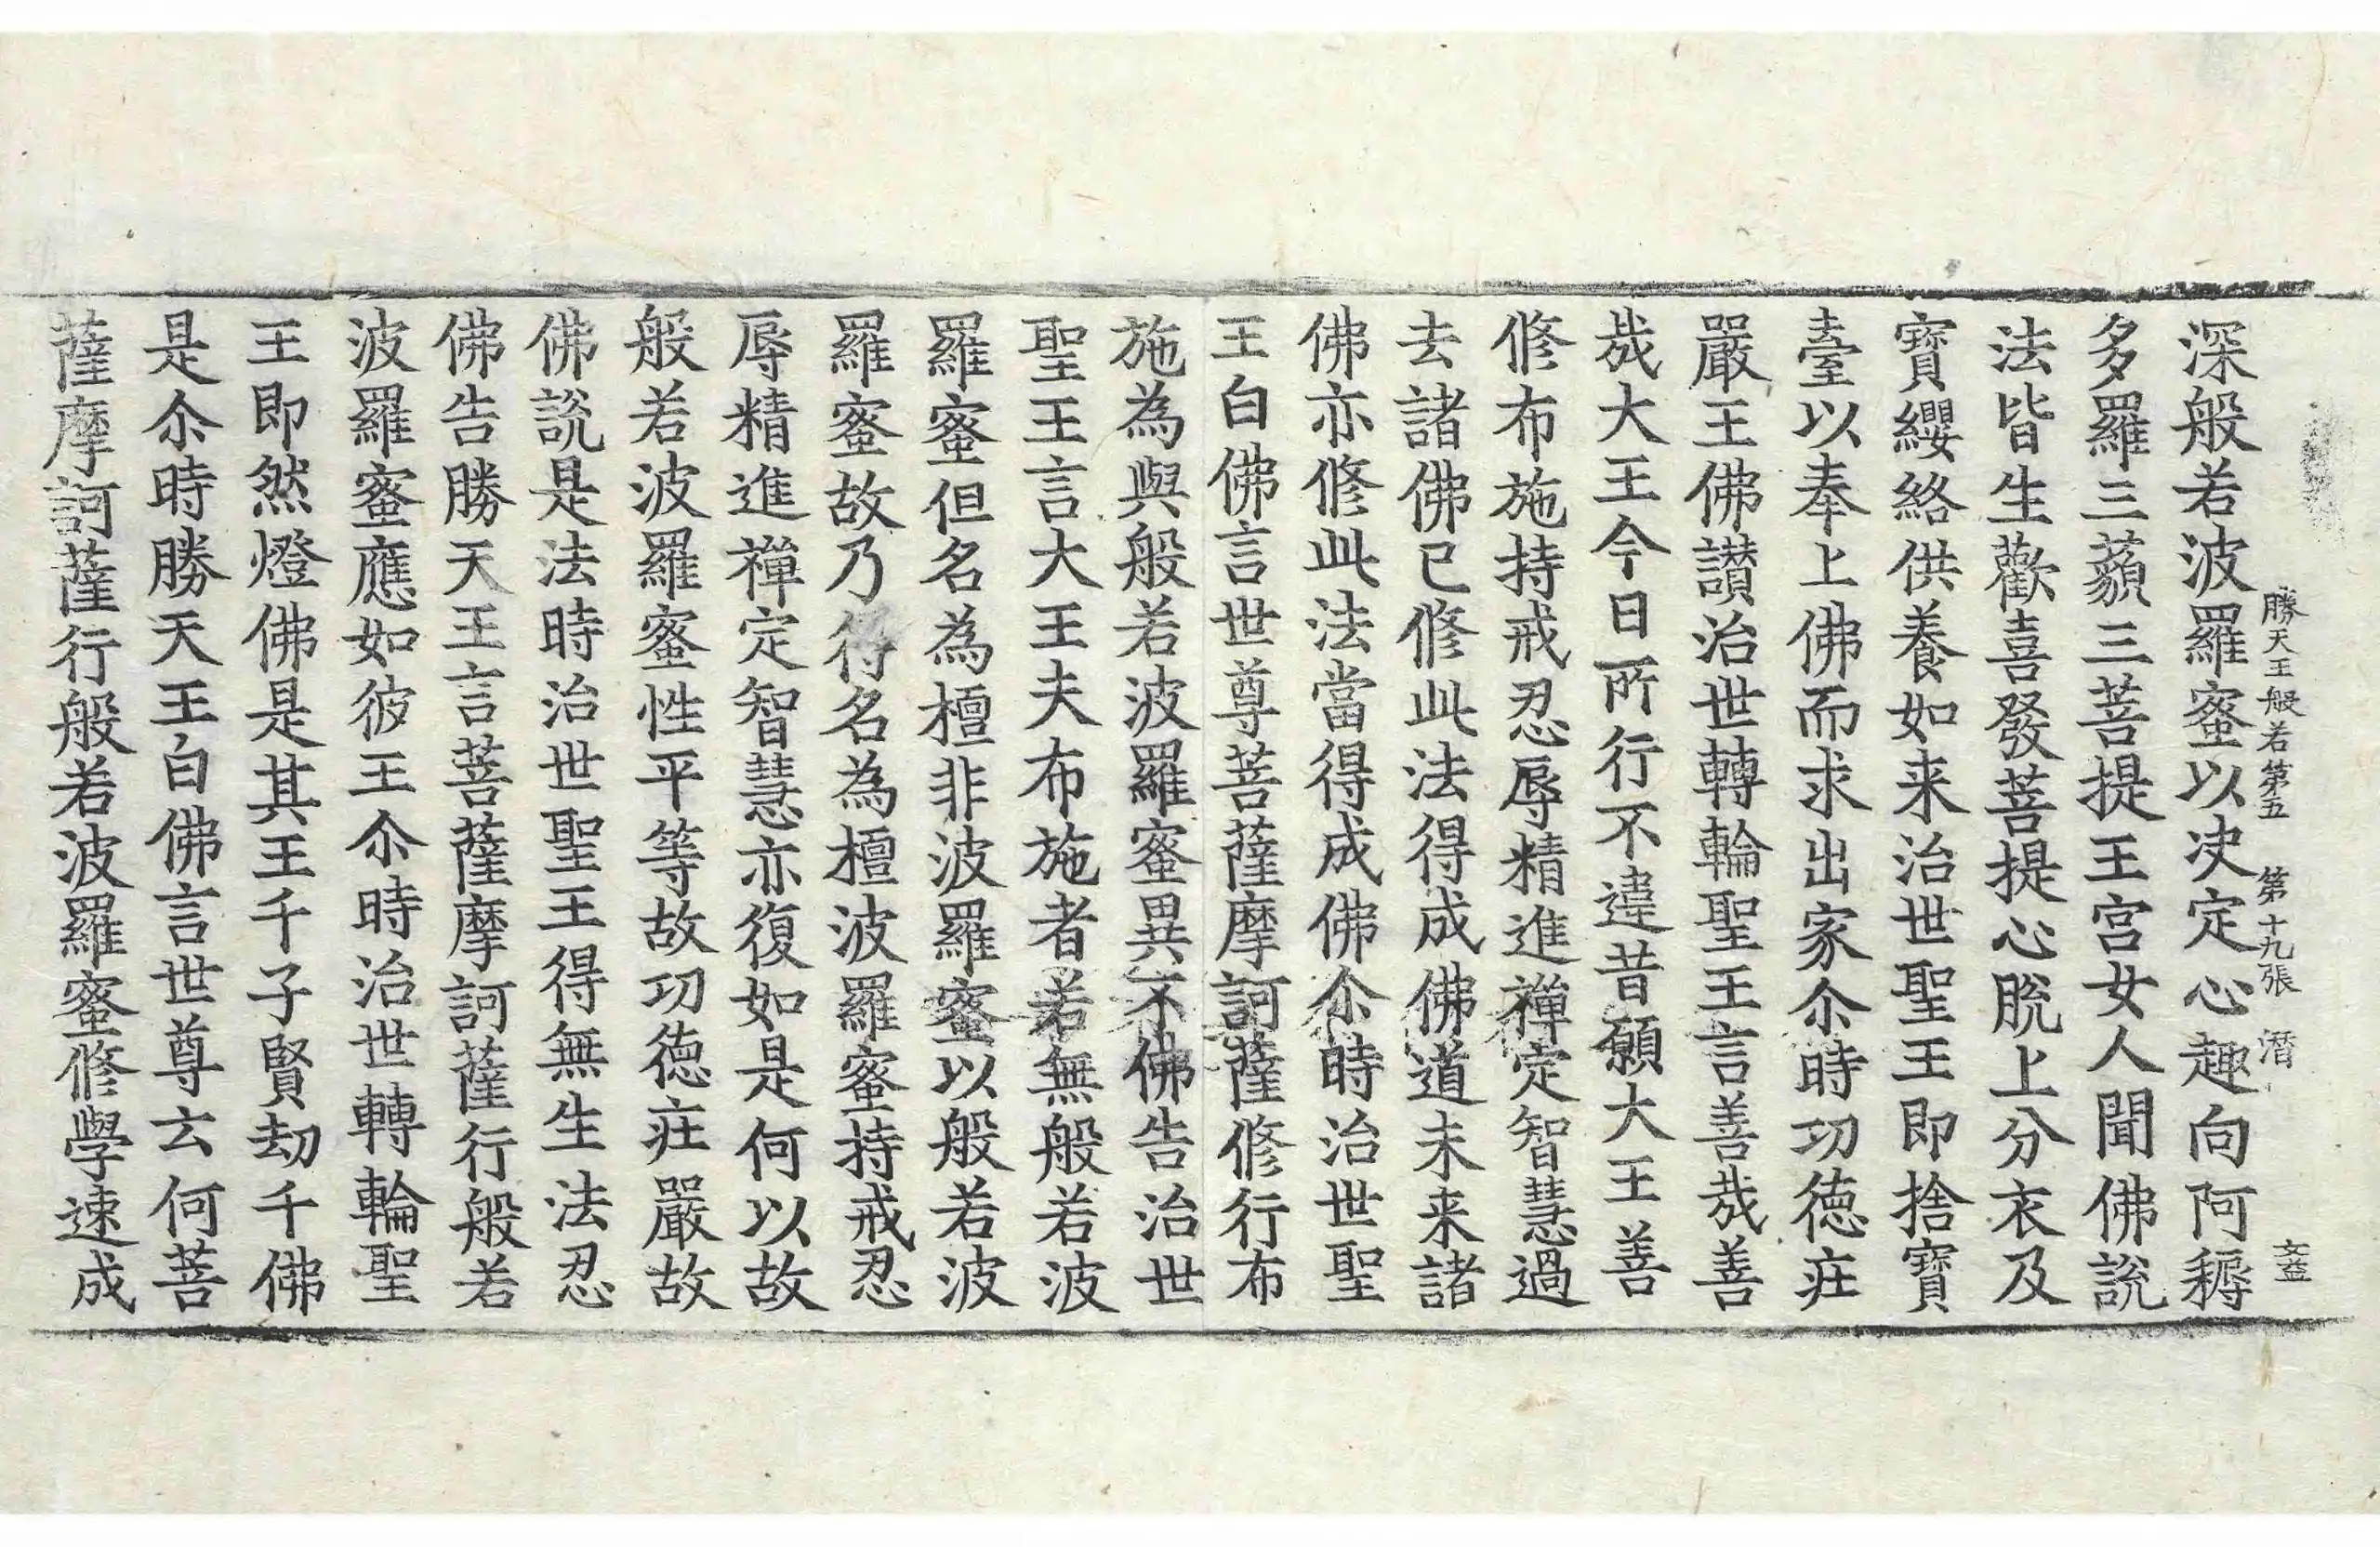 勝天王般若第五 第十九張 潛
文益
深般若波羅蜜以决定心趣向阿耨
多羅三藐三菩提王宫女人聞佛說
法皆生歡喜發菩提心脫上分衣及
寶纓絡供養如来治世聖王即捨寶
臺以奉上佛而求出家尒時功德疘
嚴王佛讃治世轉輪聖王言善㢤善
㢤大王今日所行不違昔願大王善
修布施持戒忍辱精進禪定智慧過
去諸佛已修此法得成佛道未来諸
佛亦修此法當得成佛尒時治世聖
王白佛言世尊菩薩摩訶薩修行布
施為與般若波羅蜜異不佛告治世
聖王言大王夫布施者若無般若波
羅蜜但名為檀非波羅蜜以般若波
羅蜜故乃得名為檀波羅蜜持戒忍
辱精進禪定智慧亦復如是何以故
般若波羅蜜性平等故功德疘嚴故
佛說是法時治世聖王得無生法忍
佛告勝天王言菩薩摩訶薩行般若
波羅蜜應如彼王尒時治世轉輪聖
王即然燈佛是其王千子賢劫千佛
是尒時勝天王白佛言世尊云何菩
薩摩訶薩行般若波羅蜜修學速成